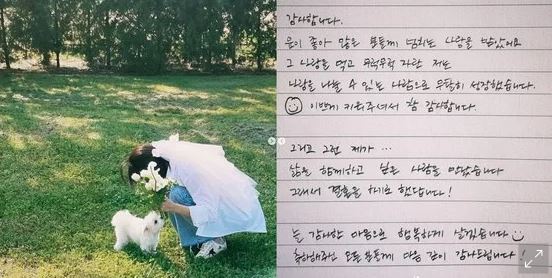 감사합니다.
운이 좋아 많은 분들께 넘치는 사랑을 받았어요
그 사랑을 먹고 무럭무럭 자란 저는
사랑을 나눌 수 있는 사람으로 무탈히 성장했습니다.
이쁘게 키워주셔서 참 감사합니다.
그리고 그런 제가 ...
삶을 함께하고 싶은 사람을 만났습니다
그래서 결혼을 하기로 했답니다!
늘 감사한 마음으로 행복하게 살겠습니다
축하해주신 모든 분들께 마음 깊이 감사드립니다